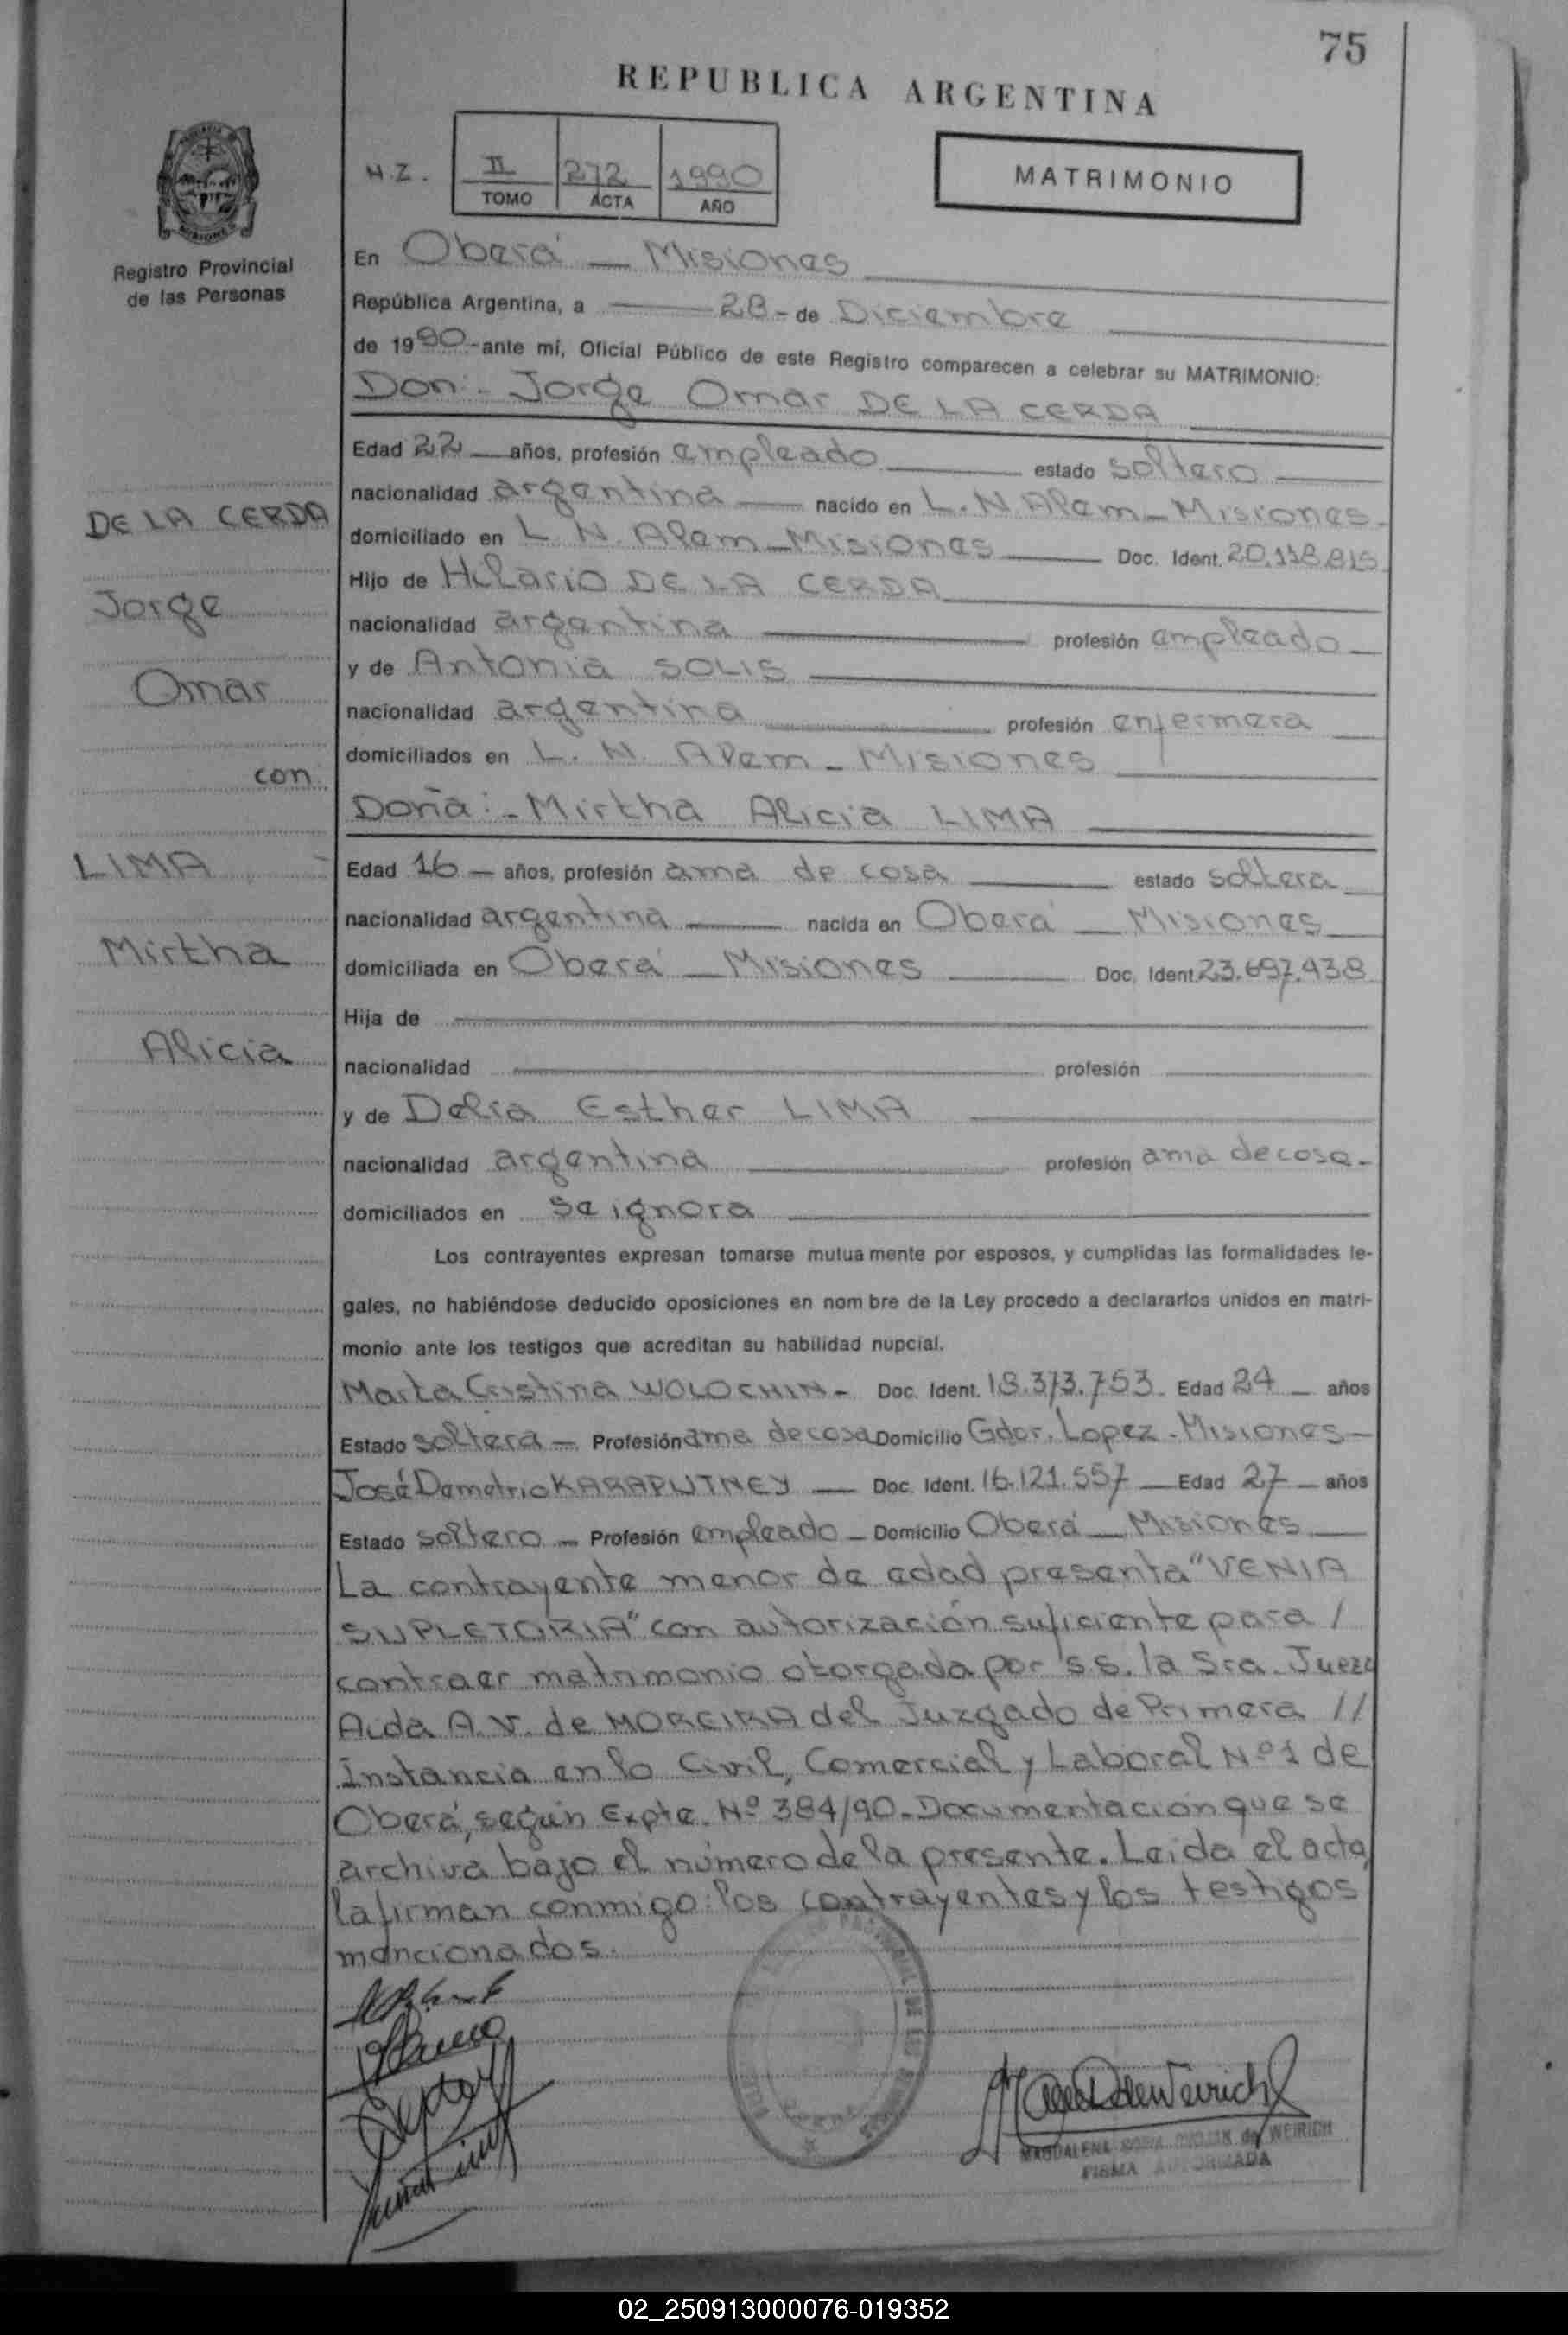 75
REPUBLICA ARGENTINA
H.Z.
II 272 1990
TOMO ACTA AÑO
MATRIMONIO
Registro Provincial
de las Personas
En Oberá — Misiones
República Argentina, a 28 - de Diciembre
de 1990 - ante mí, Oficial Público de este Registro comparecen a celebrar su MATRIMONIO:
Don: - Jorge Omar DE LA CERDA
Edad 22 años, profesión empleado estado soltero
nacionalidad argentina nacido en L. N. Alem - Misiones -
domiciliado en L. N. Alem - Misiones Doc. Ident.
Hijo de Hilario DE LA CERDA
nacionalidad argentina profesión empleado
y de Antonia SOLIS
nacionalidad argentina profesión enfermera
domiciliados en L. N. Alem - Misiones
DE LA CERDA
Jorge
Omar
con
LIMA
Mirtha
Alicia
Doña: - Mirtha Alicia LIMA
Edad 16 — años, profesión ama de casa estado soltera
nacionalidad argentina nacida en Oberá — Misiones
domiciliada en Oberá — Misiones Doc. Ident. 23.697.938
Hija de
nacionalidad profesión
y de Delia Esther LIMA
nacionalidad argentina profesión ama de casa -
domiciliados en se ignora
Los contrayentes expresan tomarse mutuamente por esposos, y cumplidas las formalidades le-
gales, no habiéndose deducido oposiciones en nombre de la Ley procedo a declararlos unidos en matri-
monio ante los testigos que acreditan su habilidad nupcial.
Marta Cristina WOLOCHIN - Doc. Ident. 18.373.753 - Edad 24 — años
Estado soltera — Profesión ama de casa Domicilio Gdor. Lopez - Misiones —
José Demetrio KARAPUTNEY — Doc. Ident. 16.121.557 — Edad 27 — años
Estado soltero — Profesión empleado — Domicilio Oberá — Misiones
La contrayente menor de edad presenta "VENIA
SUPLETORIA" con autorización suficiente para /
contraer matrimonio otorgada por S.S. la Sra. Jueza
Aida A. V. de MOREIRA del Juzgado de Primera //
Instancia en lo Civil, Comercial y Laboral Nº 1 de
Oberá, según Expte. Nº 384/90 - Documentación que se
archiva bajo el número de la presente. Leida el acta,
la firman conmigo: los contrayentes y los testigos
mencionados.
MAGDALENA de WEIRICH
FIRMA AUTORIZADA
02_250913000076-019352